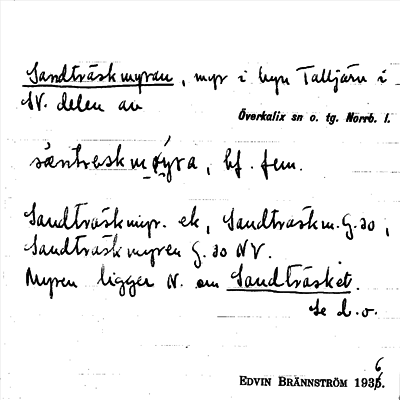 Sandträskmyran, myr i byn Talljärn i
NV. delen av
Överkalix sn o. tg. Norrb. l.
bf. fem.
Sandträskmyr. ek, Sandträskm. G. 30,
Sandträskmyren G. 30 NV.
Myren ligger N. om Sandträsket.
Se d. o.
EDVIN BRÄNNSTRÖM 1936.